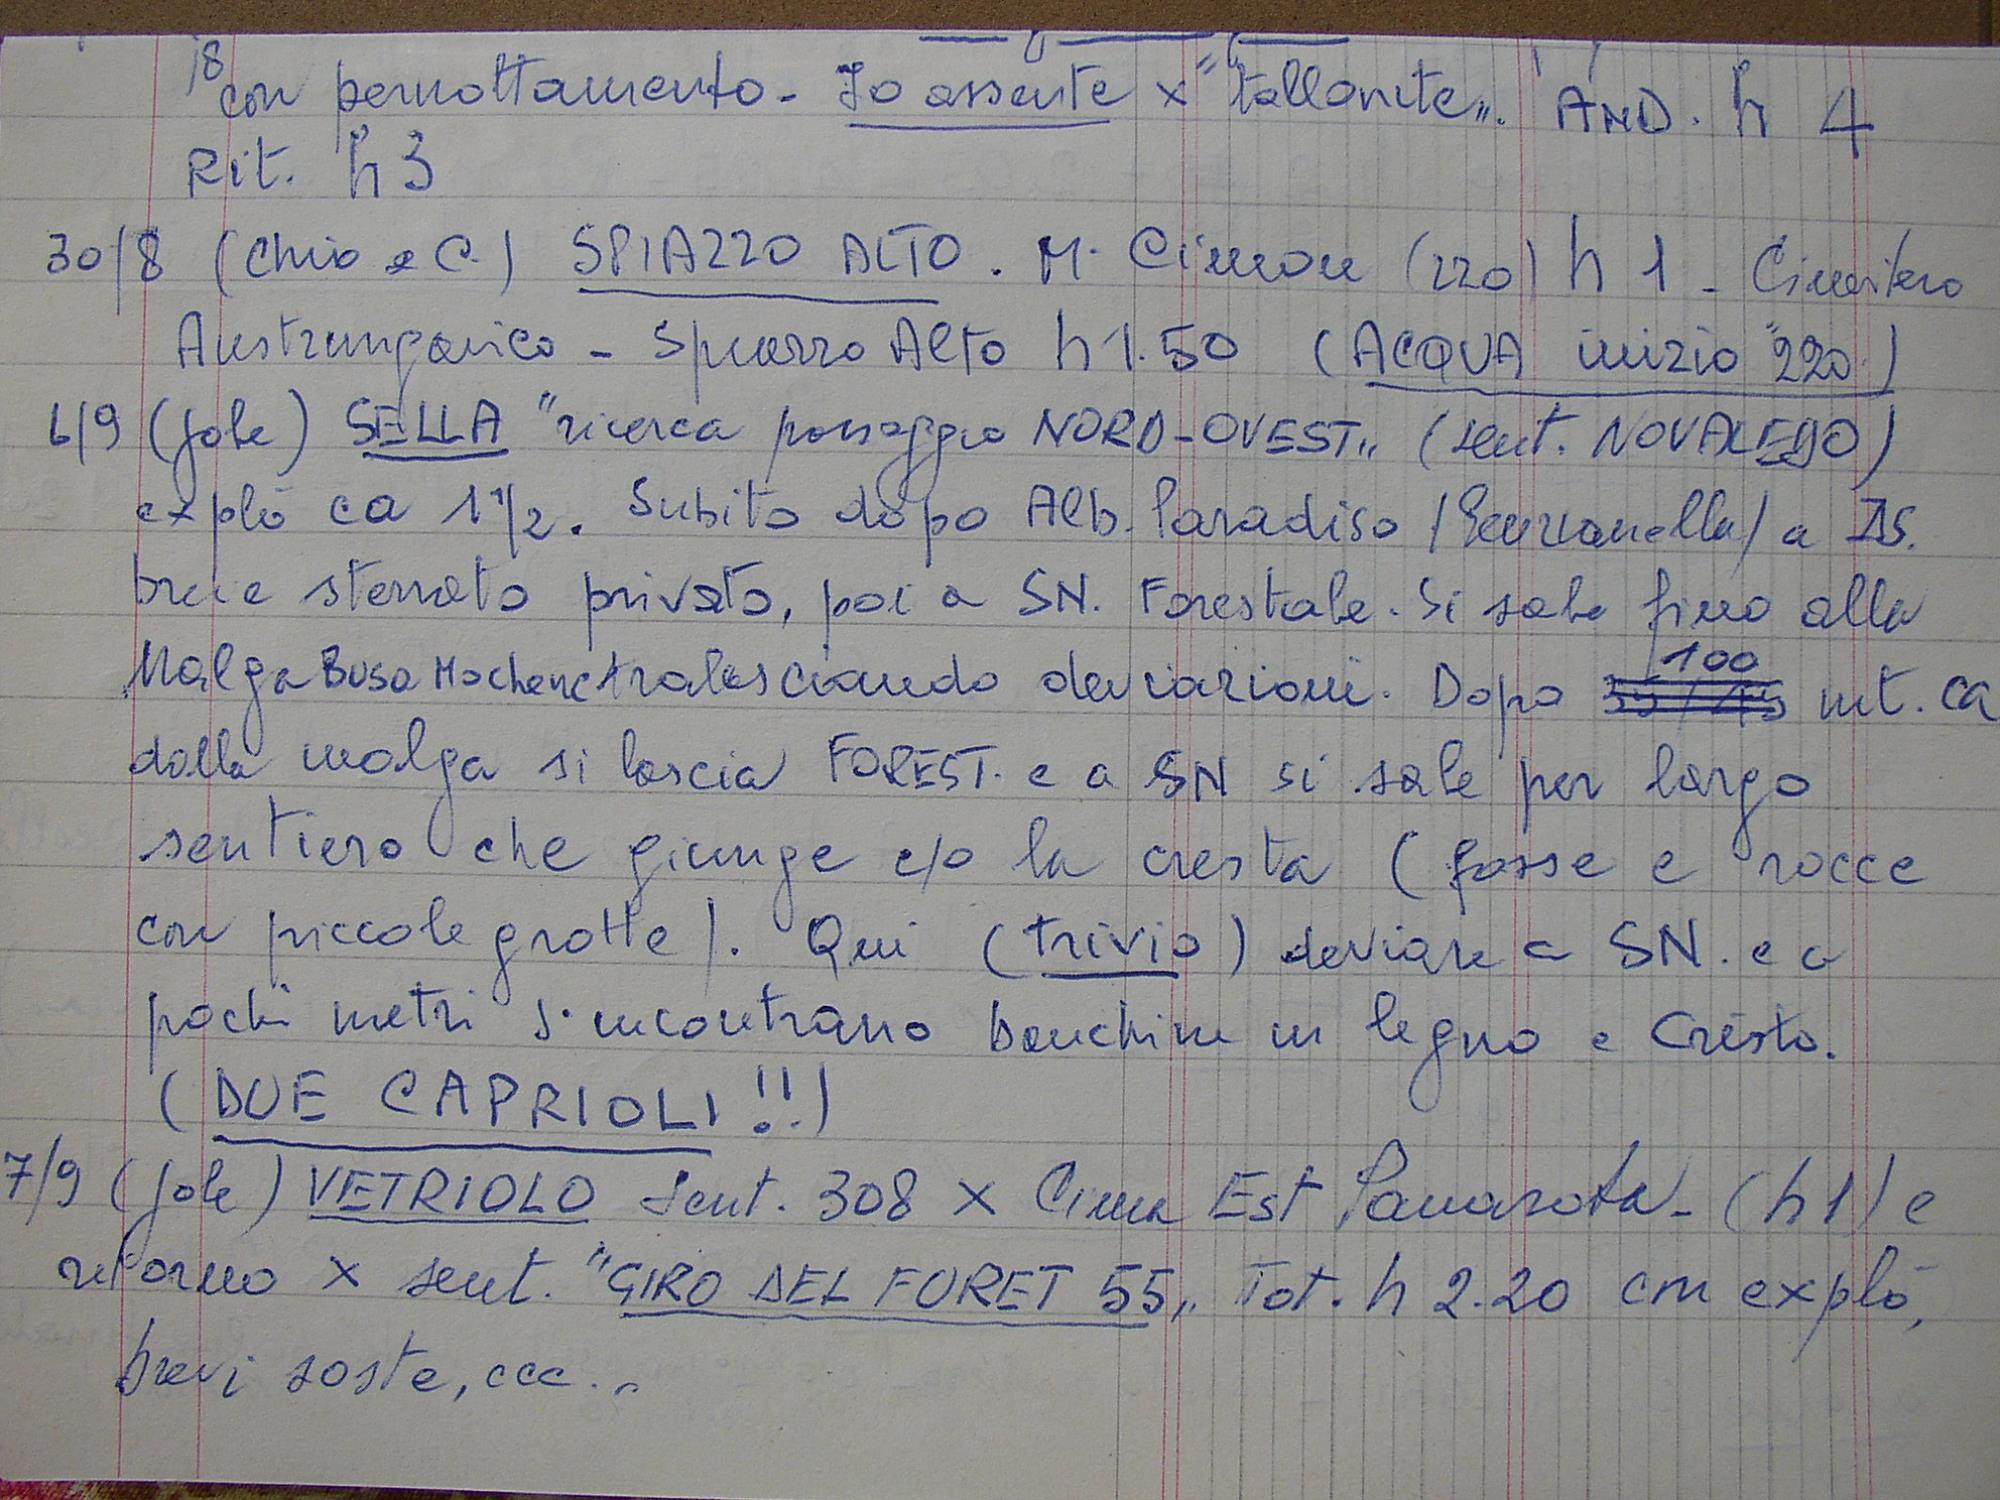 /8 con pernottamento - Io assente x "tallonite". AND. h 4
Rit. h 3
30/8 (Chio e C.) SPIAZZO ALTO. M. Cimon (220) h 1 - Cimitero
Austrungarico - Spiazzo Alto h 1.50 (ACQUA inizio "220")
6/9 (Jole) SELLA "ricerca passaggio NORD-OVEST" (sent. NOVALEGO)
explò ca 1 1/2. Subito dopo Alb. Paradiso (Serranella) a DS.
breve sterrato privato, poi a SN. Forestale. Si sale fino alla
Malga Busa Mochene tralasciando deviazioni. Dopo 100 mt. ca
dalla malga si lascia FOREST. e a SN si sale per largo
sentiero che giunge c/o la cresta (fosse e rocce
con piccole grotte). Qui (trivio) deviare a SN. e a
pochi metri s'incontrano banchine in legno e Cristo.
(DUE CAPRIOLI!!)
7/9 (Jole) VETRIOLO Sent. 308 x Cima Est Panarotta - (h 1) e
ritorno x sent. "GIRO DEL FORET 55" Tot. h 2.20 con explò,
brevi soste, ecc..